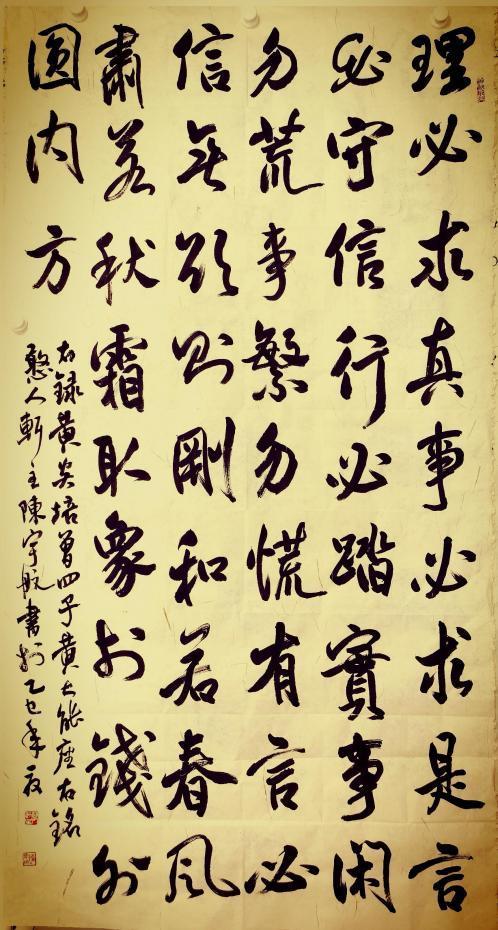 理必求真事必求是言
必守信行必踏實事閑
勿荒事繁勿慌有言必
信無欲則剛和若春風
肅若秋霜取象於錢外
圓内方
右錄黃炎培曾四子黃大能座右銘
憨人軒主陳宇航書於乙巳年